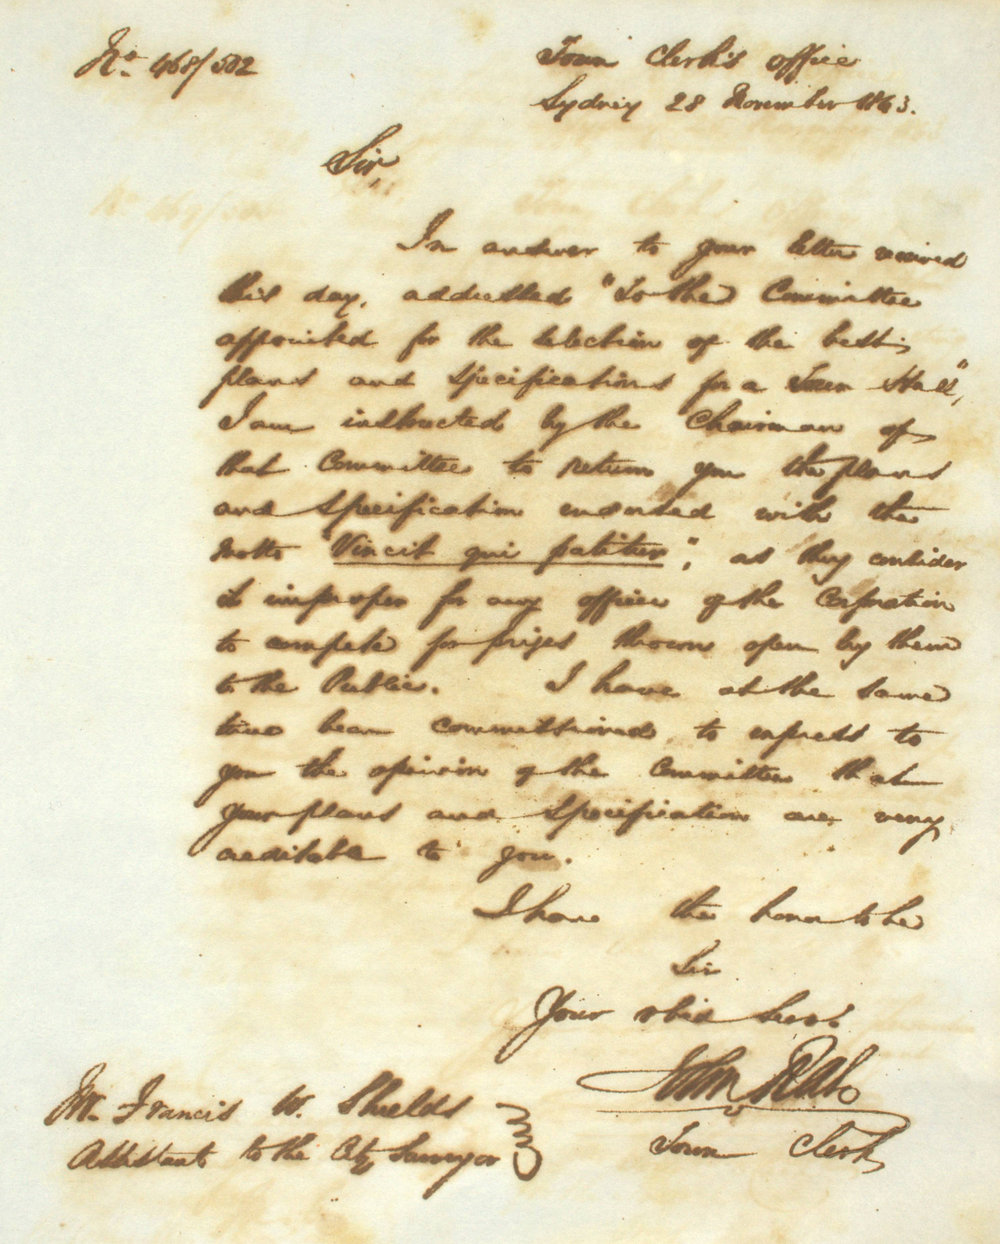 No. 468/502
Town Clerk's Office
Sydney 28 November 1863.
Sir,
In answer to your letter received
this day, addressed "To the Committee
appointed for the selection of the best
plans and specifications for a Town Hall",
I am instructed by the Chairman of
that Committee to return you the plans
and specification indorsed with the
motto "Vincit qui patitur", as they consider
it improper for any officer of the Corporation
to compete for prizes thrown open by them
to the Public. I have at the same
time been commissioned to express to
you the opinion of the Committee that
your plans and specification are very
creditable to you.
I have the honor to be
Sir
Your obed Servt
John Rae
Town Clerk
Mr. Francis W. Shields
Assistant to the City Surveyor